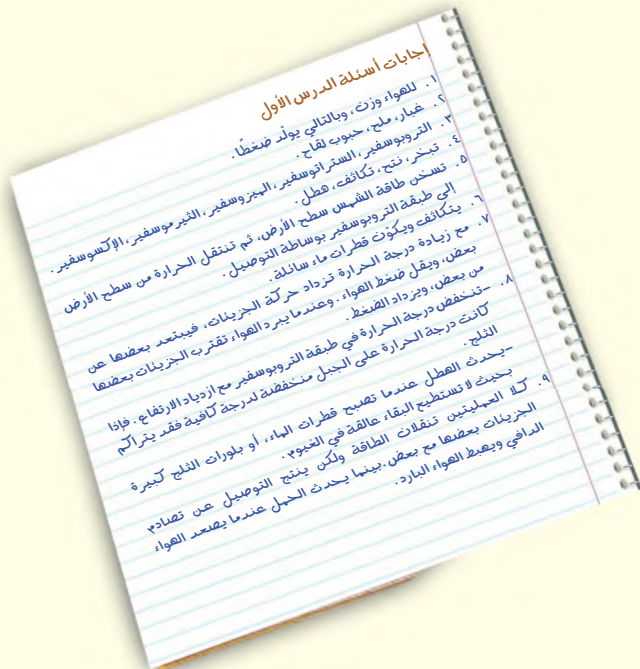 إجابات أسئلة الدرس الأول
١. للهواء وزن، وبالتالي يولّد ضغطًا.
٢. غبار، ملح، حبوب لقاح.
٣. التروبوسفير، الستراتوسفير، الميزوسفير، الثيرموسفير، الإكسوسفير.
٤. تبخر، نتح، تكاثف، هطل.
٥. تسخن طاقة الشمس سطح الأرض، ثم تنتقل الحرارة من سطح الأرض
إلى طبقة التروبوسفير بوساطة التوصيل.
٦. يتكاثف ويكوّن قطرات ماء سائلة.
٧. مع زيادة درجة الحرارة تزداد حركة الجزيئات، فيبتعد بعضها عن
بعض، ويقل ضغط الهواء. وعندما يبرد الهواء تقترب الجزيئات بعضها
من بعض، ويزداد الضغط.
٨. -تنخفض درجة الحرارة في طبقة التروبوسفير مع ازدياد الارتفاع. فإذا
كانت درجة الحرارة على الجبل منخفضة لدرجة كافية فقد يتراكم
الثلج.
-يحدث الهطل عندما تصبح قطرات الماء، أو بلورات الثلج كبيرة
بحيث لا تستطيع البقاء عالقة في الغيوم.
٩. كلا العمليتين تنقلان الطاقة ولكن ينتج التوصيل عن تصادم
الجزيئات بعضها مع بعض. بينما يحدث الحمل عندما يصعد الهواء
الدافي ويهبط الهواء البارد.